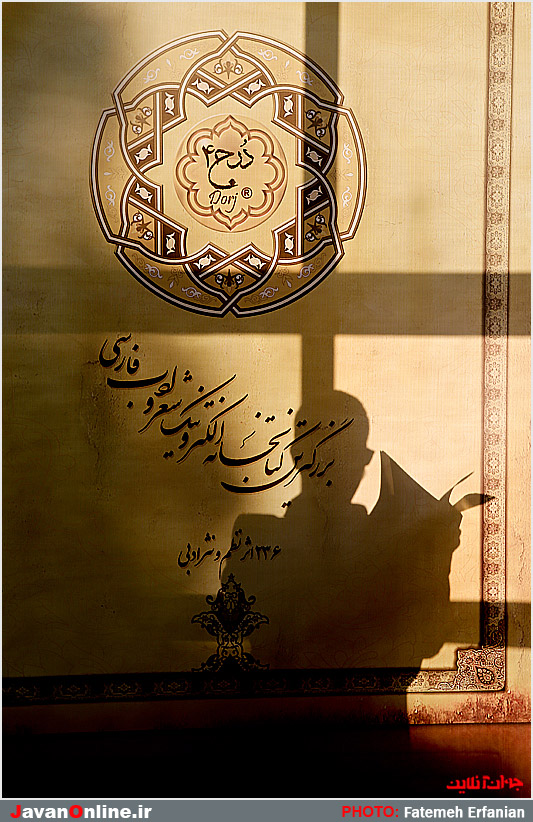 دُرج ۴
Dorj ®
بزرگترین کتابخانه الکترونیک شعر و ادب فارسی
۲۳۶ اثر نظم و نثر ادبی
جوان آنلاین
JavanOnline.ir
PHOTO: Fatemeh Erfanian